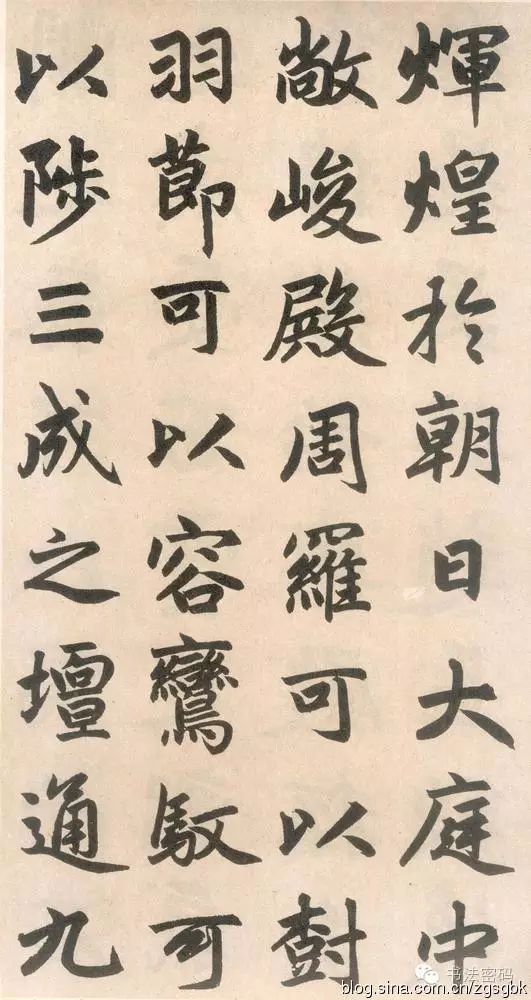 煇煌於朝日大庭中
敞峻殿周羅可以樹
羽節可以容鸞馭可
以陟三成之壇通九
书法密码
blog.sina.com.cn/zgsgbk